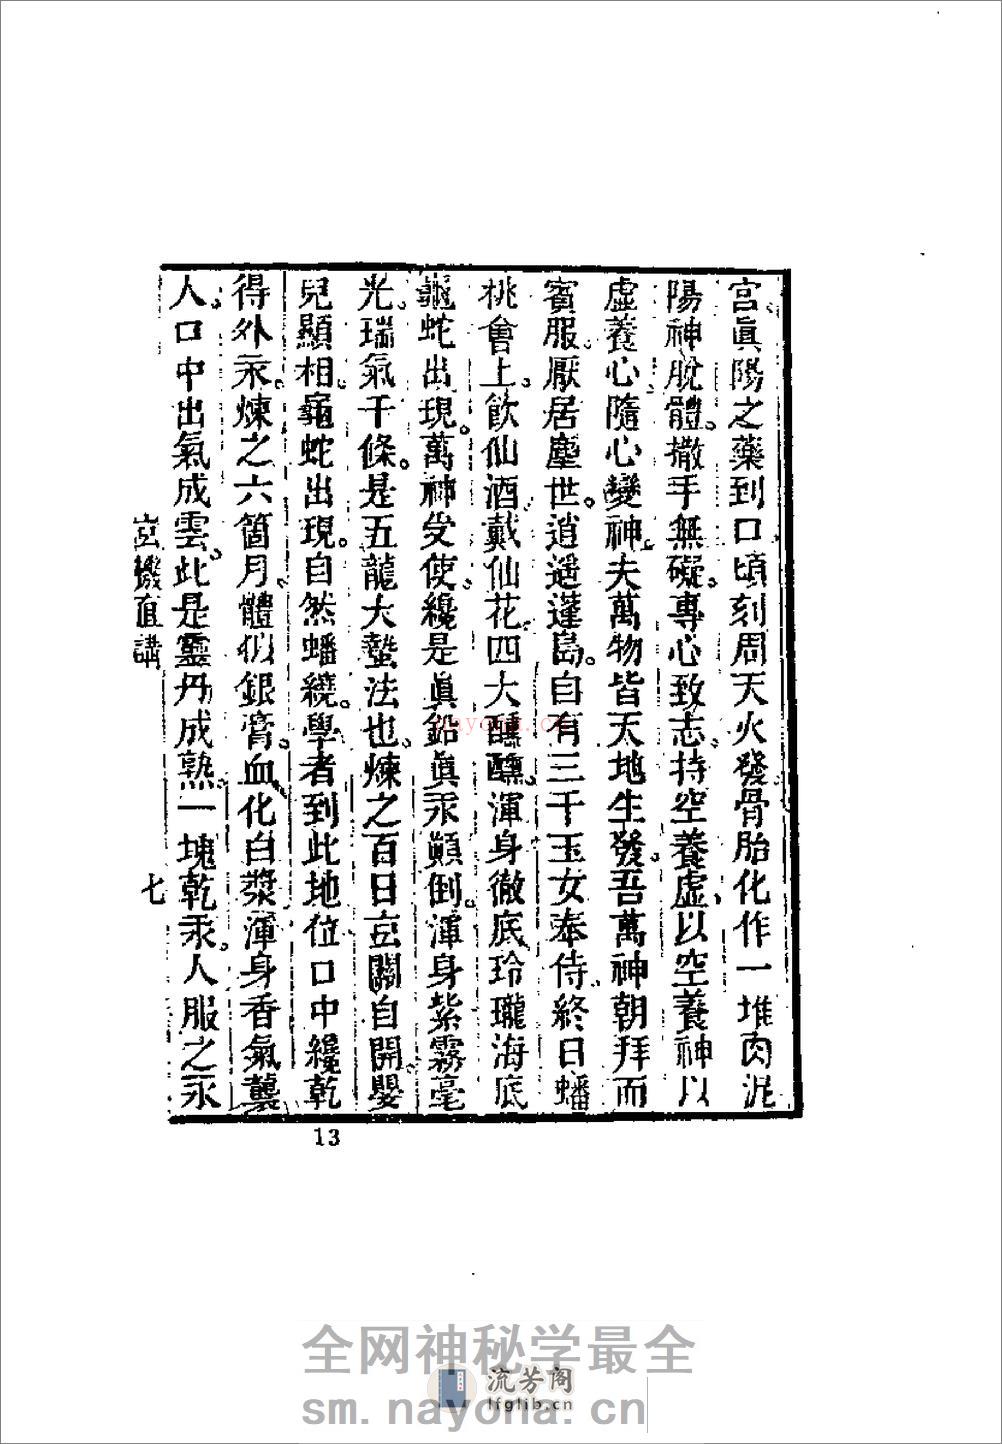 宫。眞陽之藥到口。頃刻周天火發。骨胎化作一堆肉泥
陽神脫體。撒手無礙。專心致志。持空養虛。以空養神。以
虛養心。隨心變神。夫萬物皆天地生發。吾萬神朝拜而
賓服。厭居塵世。逍遥蓬島。自有三千玉女奉侍。終日蟠
桃會上。飮仙酒戴仙花。四大醺醺。渾身徹底玲瓏。海底
龜蛇出現。萬神受使。纔是眞鉛眞汞顚倒。渾身紫霧毫
光。瑞氣千條。是五龍大蟄法也。煉之百日。玄關自開。嬰
兒顯相。龜蛇出現。自然蟠繞。學者到此地位。口中纔乾
得外汞。煉之六箇月。體似銀膏。血化白漿。渾身香氣襲
人。口中出氣成雲。此是靈丹成熟。一塊乾汞。人服之永
玄機直講
七
13
nayona.cn
全网神秘学最全
流芳阁
lfglib.cn
sm.nayona.cn